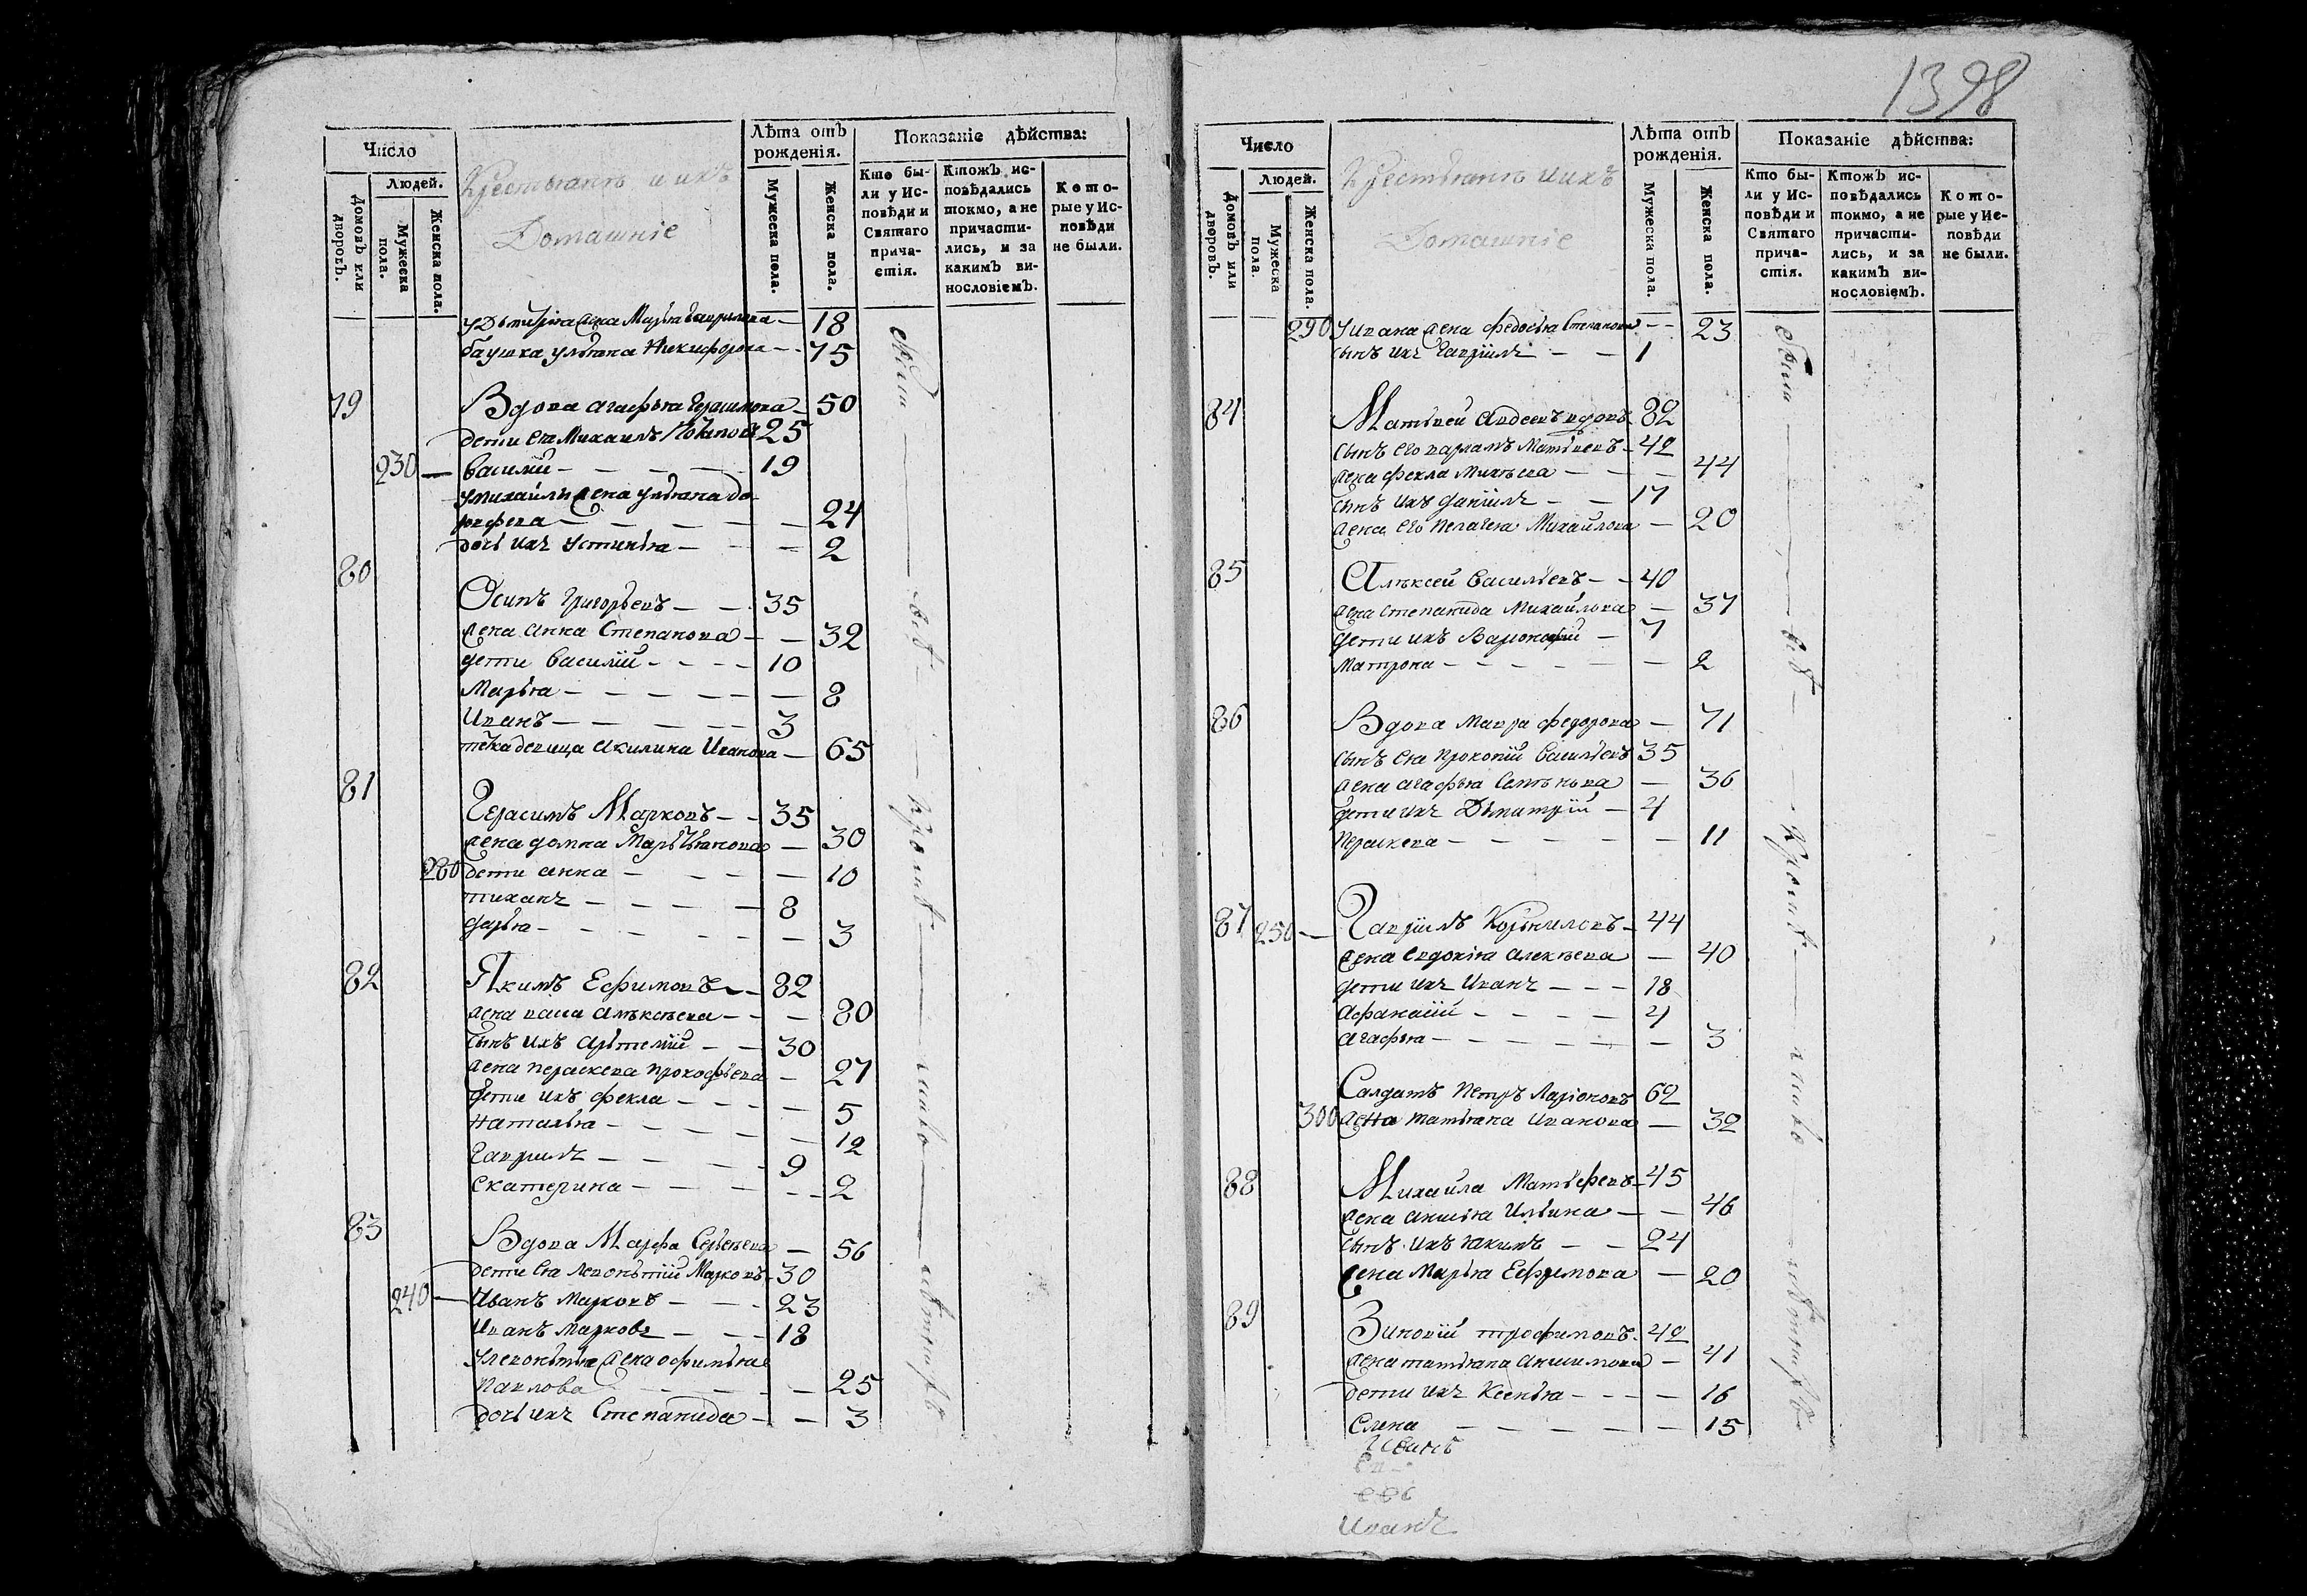 1398
Число
Людей.
Домовъ или дворовъ.
Мужеска пола.
Женска пола.
Крестьянъ и ихъ
Домашніе
Лѣта отъ рожденія.
Мужеска пола.
Женска пола.
Показаніе дѣйства:
Кто бы-
ли у Ис-
повѣди и
Святаго
прича-
стія.
Ктожъ ис-
повѣдались
токмо, а не
причасти-
лись, и за
какимъ ви-
нословіемъ.
Кото-
рые у Ис-
повѣди
не были.
жена Марья Гаврилова — 18
баушка ульяна Никифорова — 75
79 Вдова агафья Герасимова — 50
дети ея Михаилъ 25
230 — василий — 19
умихайлы жена ульяна до
рофева — 24
дочь ихъ Устинья — 2
80
Осипъ Григорьевъ — 35
жена анна Степанова — 32
дети василій — 10
Марья — 8
Иванъ — 3
тетка девица акилина Иванова — 65
81
Герасимъ Марковъ — 35
жена домна — 30
280 дети анна — 10
тиханъ — 8
дарья — 3
82 Якимъ Ефимовъ — 82
жена алѣксѣева — 80
сынъ ихъ артемій — 30
жена параскева прокофьева — 27
дети ихъ фекла — 5
наталья — 12
Гаврилъ — 9
екатерина — 2
83 Вдова Марфа — 56
дети ея леонтій Марковъ — 30
240 — Иванъ Марковъ — 23
Иванъ Марковъ — 18
улеонтья жена офимья
павлова — 25
дочь ихъ Степанида — 3
Число
Людей.
Домовъ или дворовъ.
Мужеска пола.
Женска пола.
Крестьянъ и ихъ
Домашніе
Лѣта отъ рожденія.
Мужеска пола.
Женска пола.
Показаніе дѣйства:
Кто бы-
ли у Ис-
повѣди и
Святаго
прича-
стія.
Ктожъ ис-
повѣдались
токмо, а не
причасти-
лись, и за
какимъ ви-
нословіемъ.
Кото-
рые у Ис-
повѣди
не были.
290 уивана жена федосья Степанова — 23
сынъ ихъ Гавріилъ — 1
84 Матвей авдеевъ вдовъ 82
сынъ его варламъ Матвеевъ — 42
жена фекла михѣева — 44
сынъ ихъ даніилъ — 17
жена его пелагея Михайлова — 20
85 Алѣксей васильевъ — 40
жена степанида михайлова — 37
дети ихъ — 7
матрона — 2
86 Вдова мавра федорова — 71
сынъ ея прокопій васильевъ 35
жена агафья — 36
дети ихъ Дмитрій — 4
параскева — 11
87 250 — Гавріилъ Корниловъ — 44
жена евдокія алексѣева — 40
дети ихъ Иванъ — 18
афанасій — 4
агафья — 3
Салдатъ петръ ларіоновъ 62
300 жена татьяна иванова — 32
88 Михайла Матвѣевъ — 45
жена анисья Ильина — 46
сынъ ихъ якимъ — 24
жена Марья Ефимова — 20
89 Зиновій трофимовъ — 42
жена татьяна анисимова — 41
дети ихъ Ксенья — 16
Елена — 15
Иванъ
Иванъ